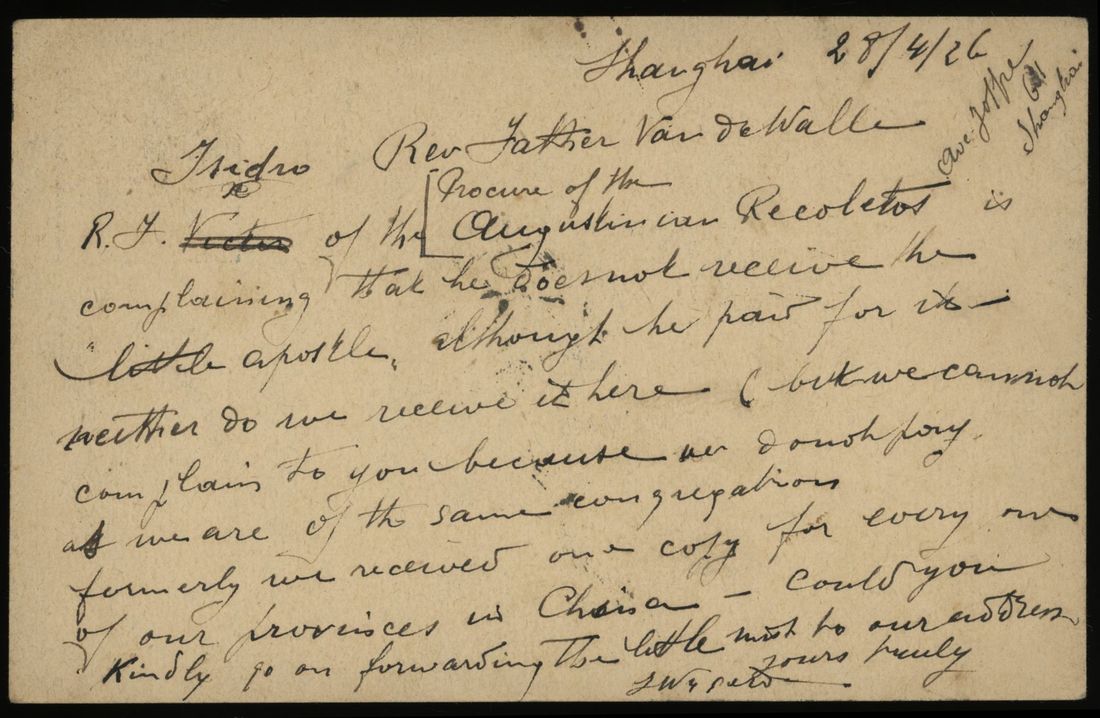 Shanghai 28/4/26
Ave. Joffre
61
Shanghai
Rev Father Van de Walle
Isidro
Procure of the
R. F. Victor of the Augustinian Recoletos is
complaining that he does not receive the
"little apostle" although he paid for it –
neither do we receive it here ( but we cannot
complain to you because we do not pay
as we are of the same congregation
formerly we received one copy for every one
of our provinces in China – could you
Kindly go on forwarding the little to our address
yours truly